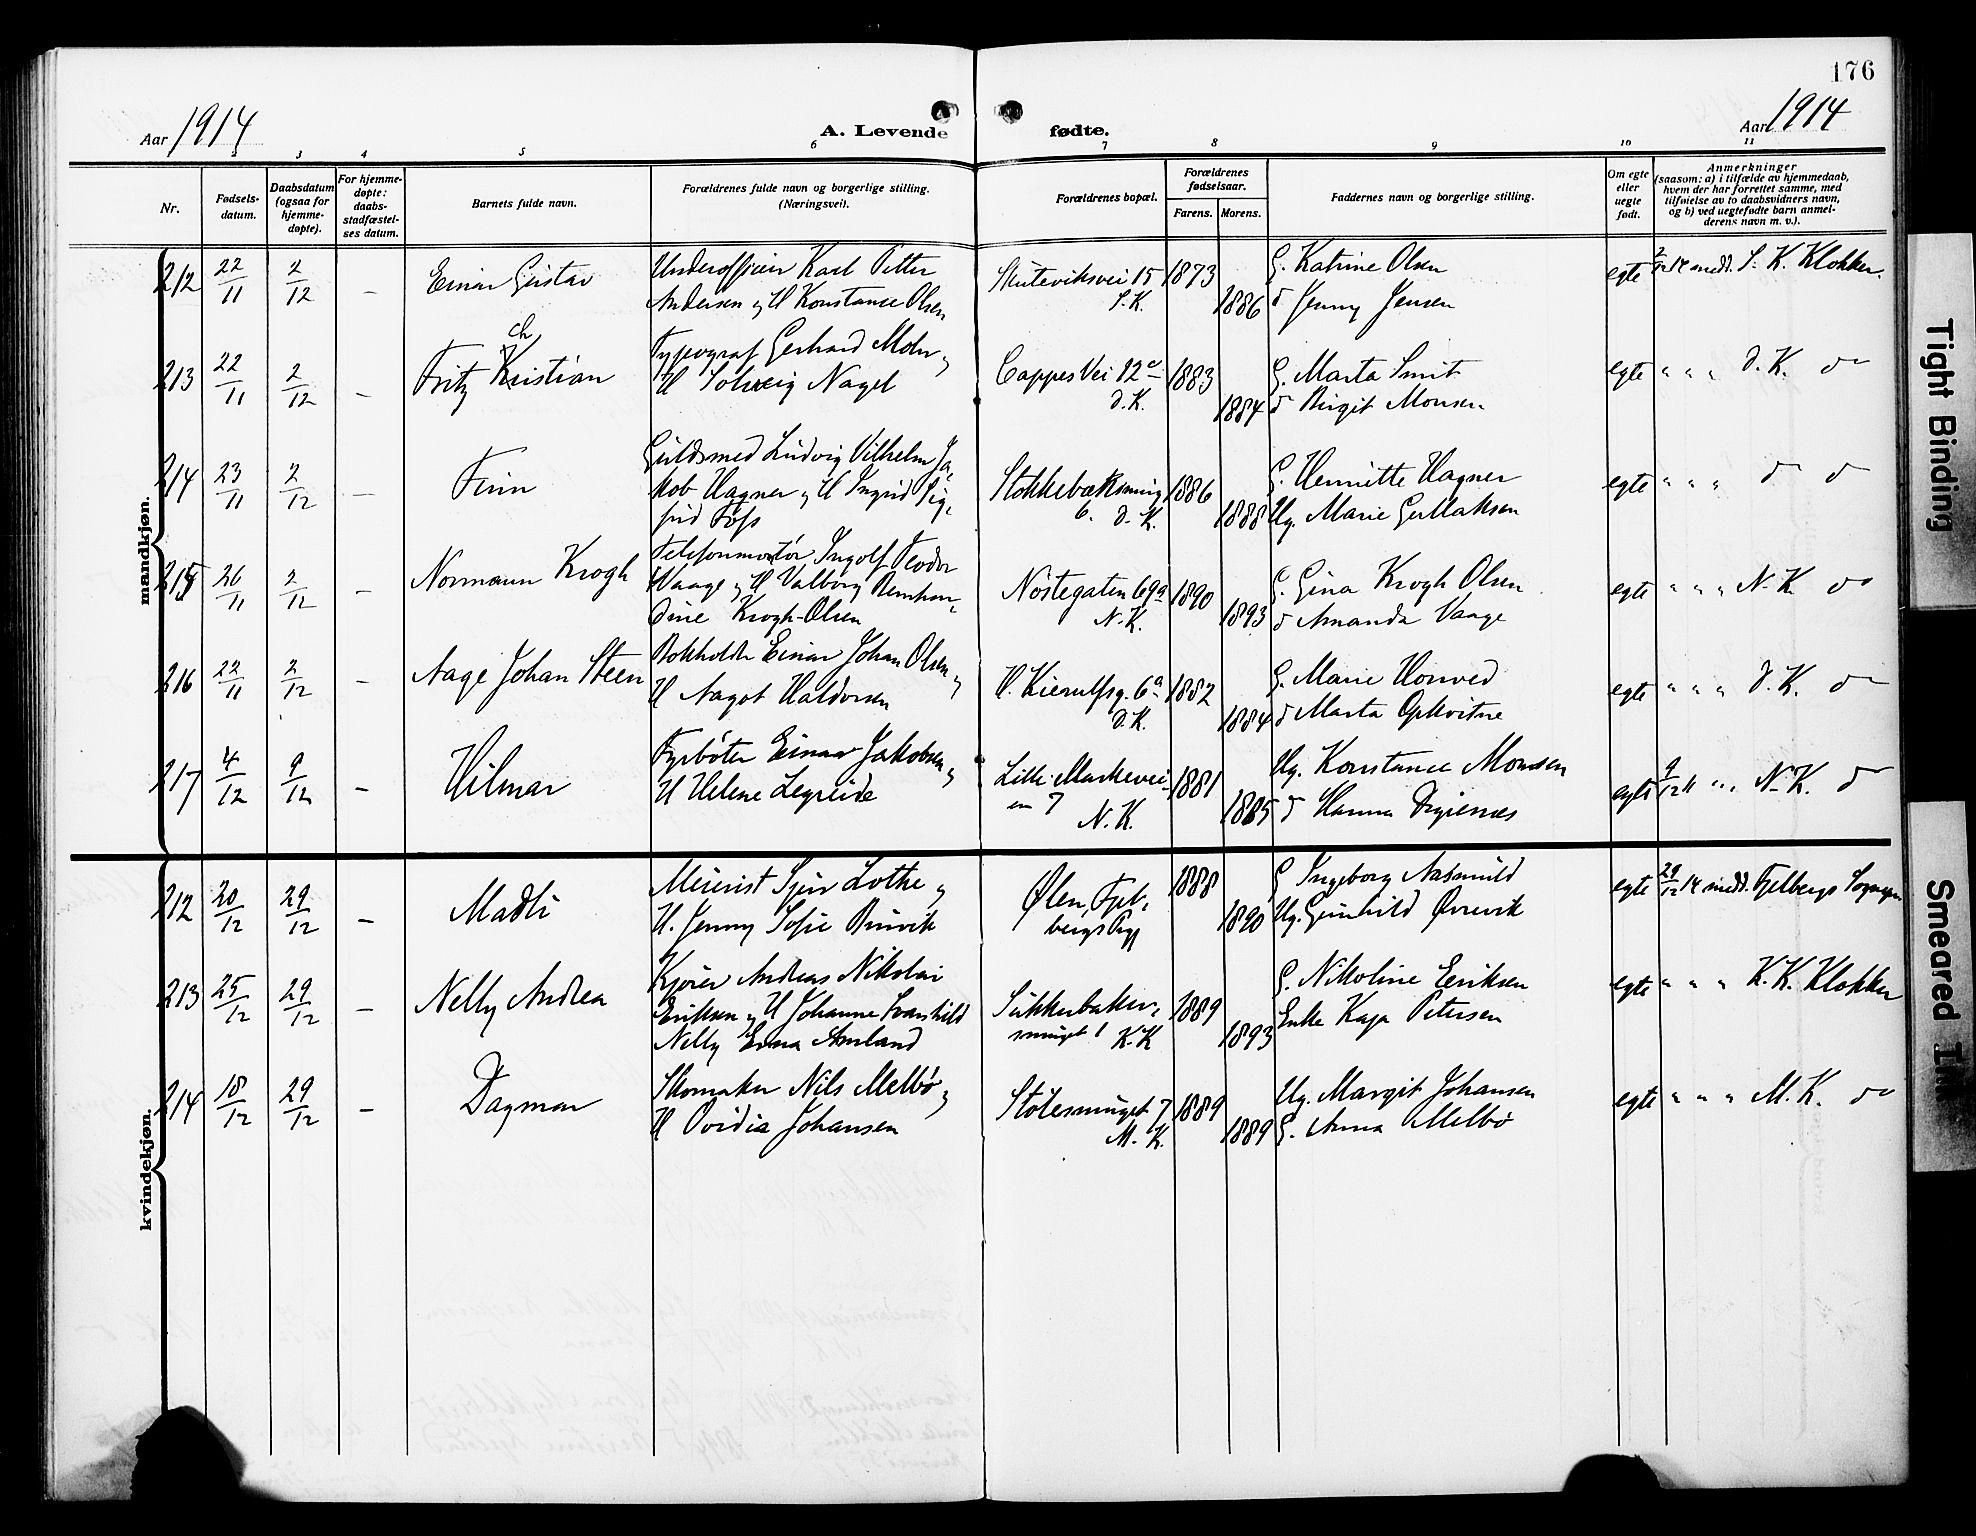 176
Aar 1914
A. Levende fødte.
Aar 1914
2 3 4 5 6 7 8 9 10 11
Nr.
Fødsels-
datum.
Daabsdatum
(ogsaa for
hjemme-
døpte).
For hjemme-
døpte:
daabs-
stadfæstel-
ses datum.
Barnets fulde navn.
Forældrenes fulde navn og borgerlige stilling.
(Næringsvei).
Forældrenes bopæl.
Forældrenes
fødselsaar.
Farens. Morens.
Faddernes navn og borgerlige stilling.
Om egte
eller
uegte
født.
Anmerkninger
(saasom: a) i tilfælde av hjemmedaab,
hvem der har forrettet samme, med
tilføielse av to daabsvidners navn,
og b) ved uegtefødte barn anmel-
derens navn m. v.).
mandkjøn.
212 22/11 2/12 – Einar Gustav
Underofficier Karl Petter
Andersen og H Konstance Olsen
Skuteviksvei 15
S.K.
1873 1886
G. Katrine Olsen
do Jenny Jensen
egte 2/12 14 medd. S. K. Klokker.
213 22/11 2/12 – Fritz Kristian
ch
Typograf Gerhard Mohr og
H Solveig Nagel
Cappes Vei 12c
D.K.
1883 1884
G. Marta Smit
do Birgit Monsen
egte " " " D. K. do
214 23/11 2/12 – Finn
Guldsmed Ludvig Vilhelm Ja-
kob Wagner og H Ingrid Sig-
frid Foss
Stokkebæksmug
6. D. K.
1886 1888
G. Henriette Wagner
Ug. Marie Gullaksen
egte " " " do do
215 26/11 2/12 – Normann Krogh
Telefonmontør Ingolf Teodor
Waage og H Valborg Bernhar-
dine Krogh-Olsen
Nøstegaten 69a
N.K.
1890 1893
G. Gina Krogh Olsen
do Amanda Vaage
egte " " " N. K. do
216 22/11 2/12 – Aage Johan Steen
Bokholder Einar Johan Olsen og
H Aagot Haldorsen
H. Kierulfsg. 6a
D.K.
1882 1884
G. Marie Honved
do Marta Opkvitne
egte " " " D. K. do
217 4/12 9/12 – Hilmar
Fyrbøter Einar Jakobsen og
H Helene Legreide
Lille Markevei-
en 7
N. K.
1881 1885
Ug. Konstance Monsen
do Hanna
egte 9/12 14 " " N. K. do
kvindekjøn.
212 20/12 29/12 – Madli
Meierist Sjur Lothe og
H. Jenny Sofie
Ølen, Fjel-
bergs Prgj
1888 1890
G Ingeborg
Ug. Gunhild Øvrevik
egte 29/12 14 medd. Fjelbergs Sognepr.
213 25/12 29/12 – Nelly Andrea
Kjører Andreas Nikolai
Eriksen og H Johanne Svanhild
Nelly Erna Amland
Sukkerbaker-
smuget 1 K.K
1889 1893
G. Nikoline Eriksen
Enke Kaja Petersen
egte " " " K. K. Klokker
214 18/12 29/12 – Dagmar
Skomaker Nils Melbø og
H Ovidia Johansen
Stølesmuget 7
M. K.
1889 1889
Ug. Margit Johansen
G. Anna Melbø
egte " " " M. K. do
Tight Binding
Smeared Ink